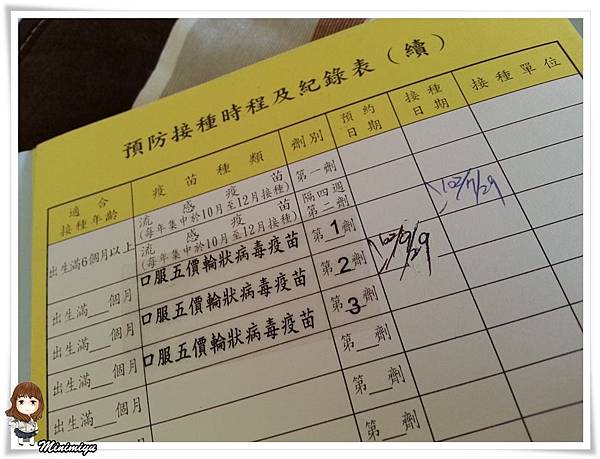 預防接種時程及紀錄表(續)
適合接種年齡 疫苗種類 劑別 預約日期 接種日期 接種單位
出生滿6個月以上 流感疫苗 (每年集中於10月至12月接種) 第一劑
流感疫苗 (每年集中於10月至12月接種) 隔四週第二劑
出生滿__個月 口服五價輪狀病毒疫苗 第1劑 102/7/29
出生滿__個月 口服五價輪狀病毒疫苗 第2劑 102/9/29
出生滿__個月 口服五價輪狀病毒疫苗 第3劑
出生滿__個月 第__劑
第__劑
Minimiyu